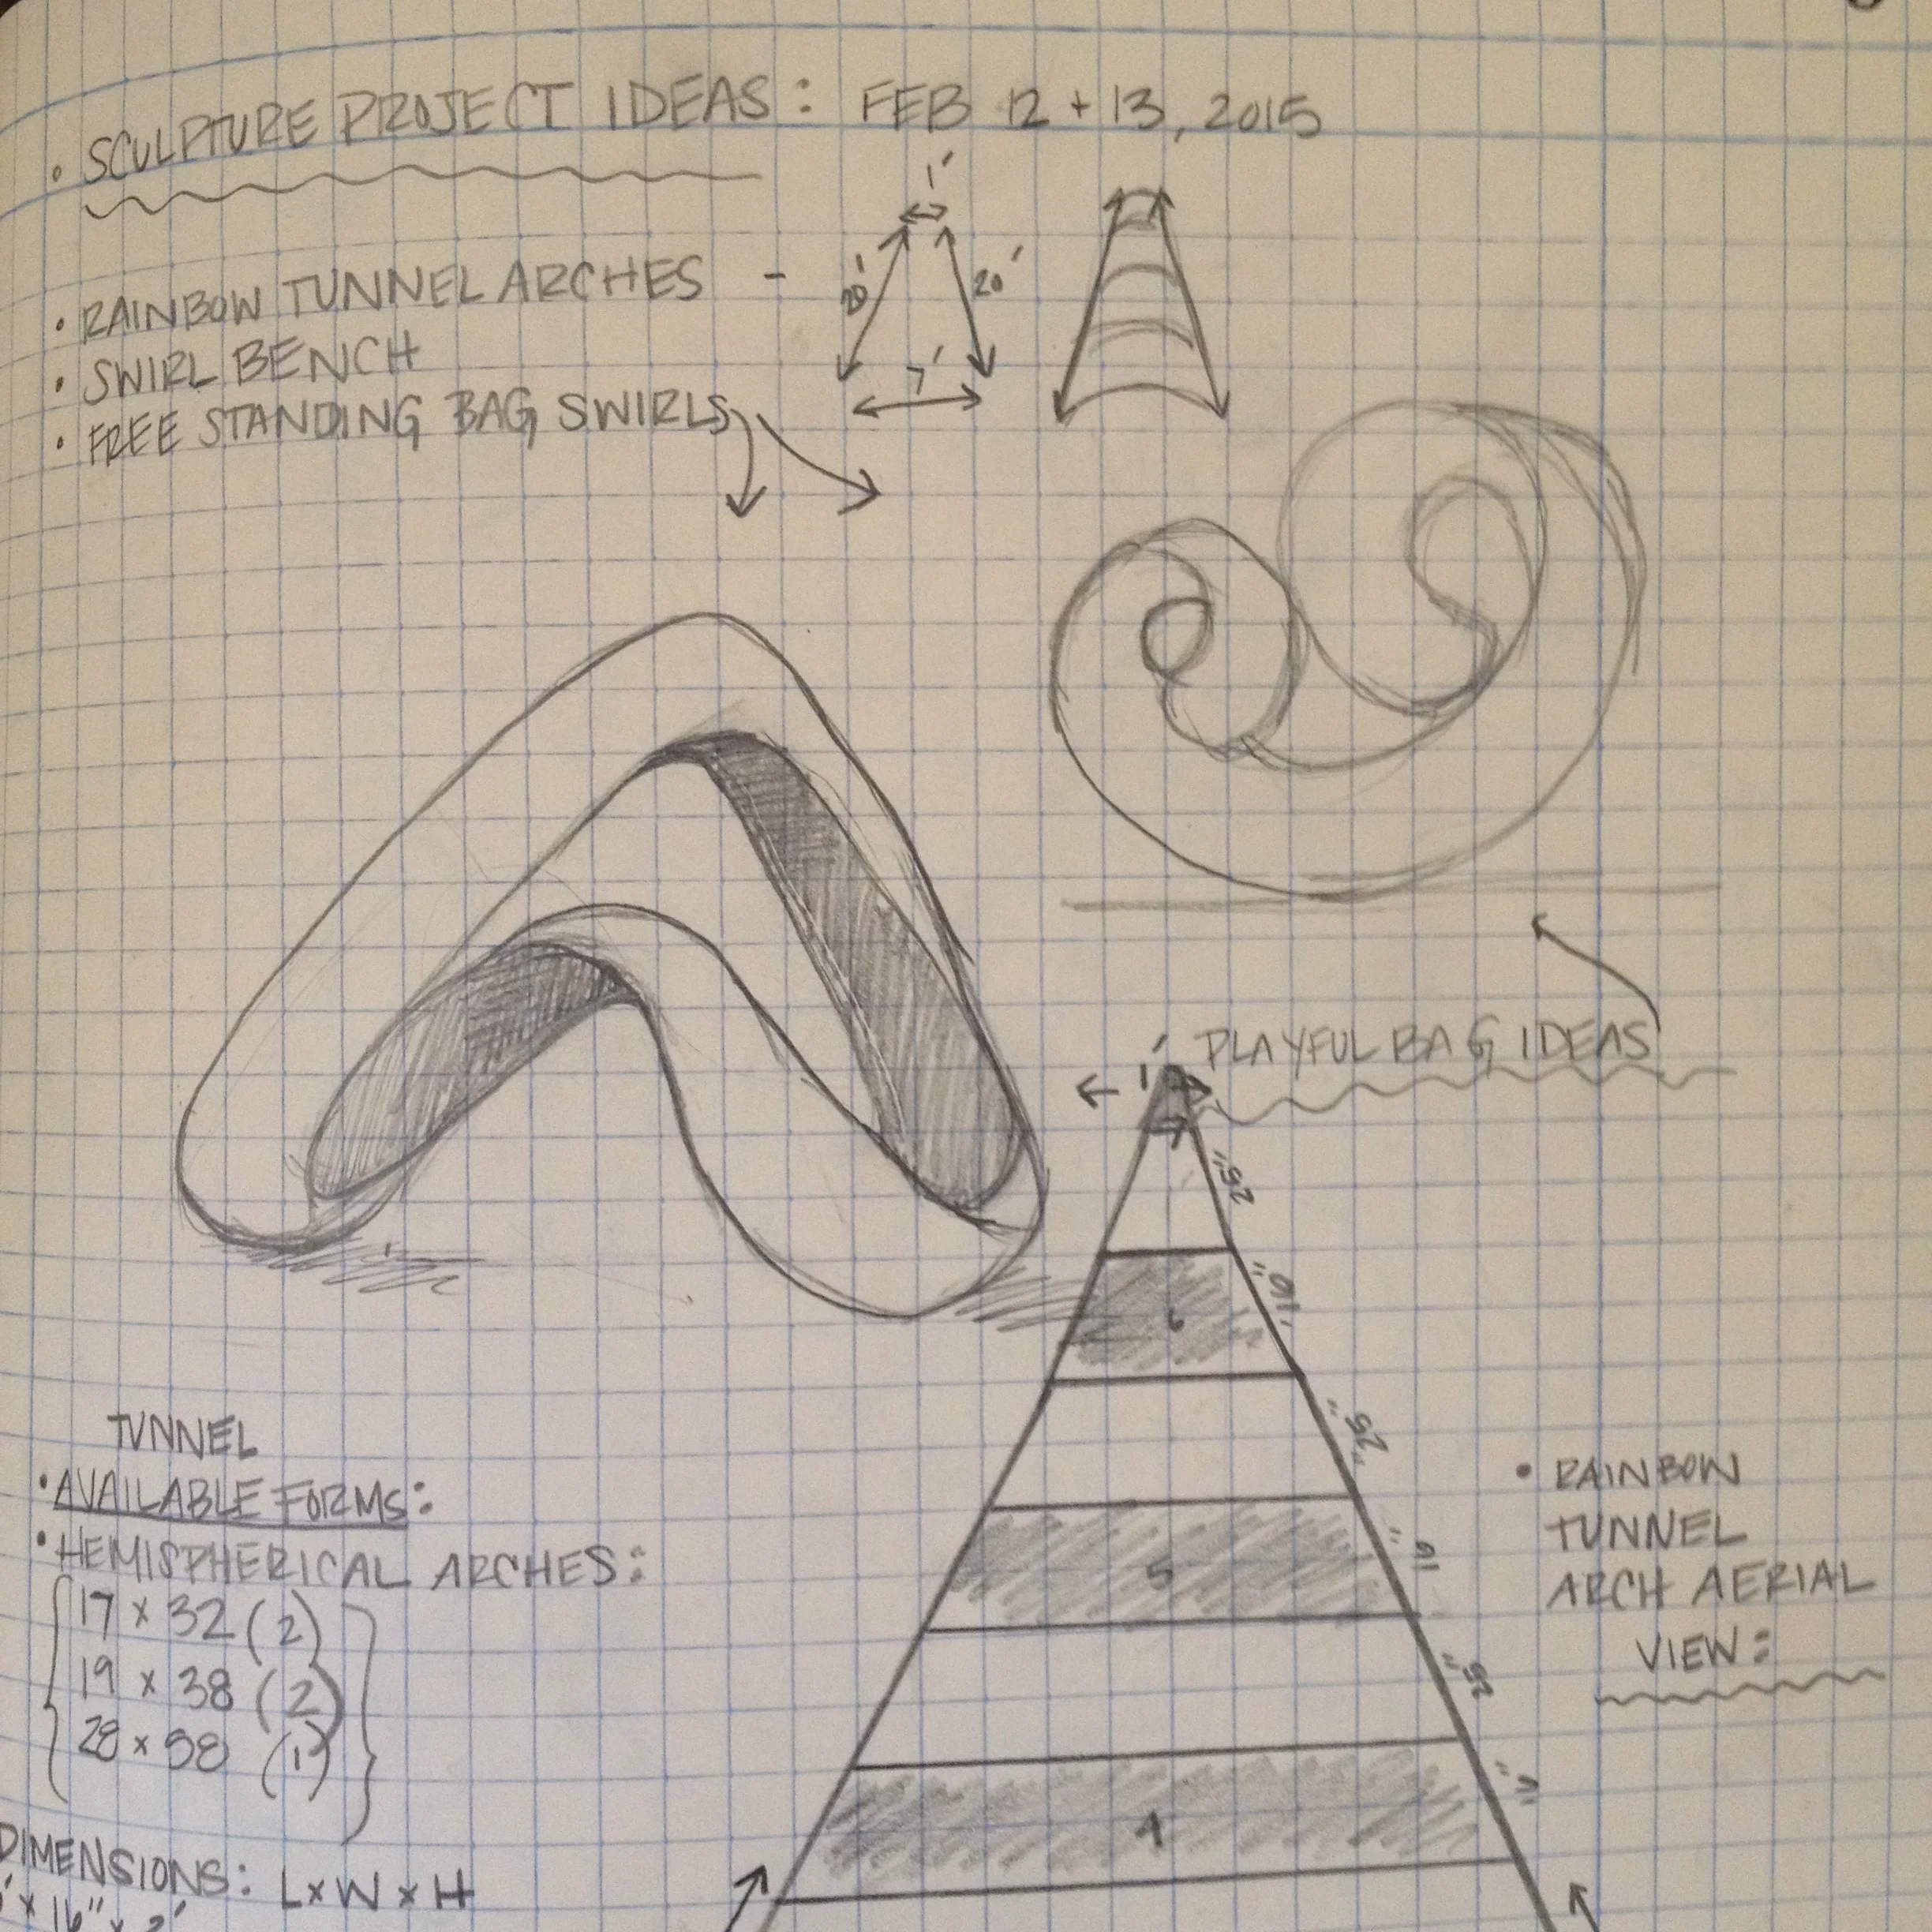 • SCULPTURE PROJECT IDEAS: FEB 12 + 13, 2015
1'
• RAINBOW TUNNEL ARCHES -
20' 20'
7'
• SWIRL BENCH
• FREE STANDING BAG SWIRLS
PLAYFUL BAG IDEAS
1'
25"
16"
6
25"
16"
5
25"
4
TUNNEL
• AVAILABLE FORMS:
• HEMISPHERICAL ARCHES:
17 x 32 (2)
19 x 38 (2)
28 x 58 (1)
• RAINBOW
TUNNEL
ARCH AERIAL
VIEW:
DIMENSIONS: L x W x H
x 16" x 2'